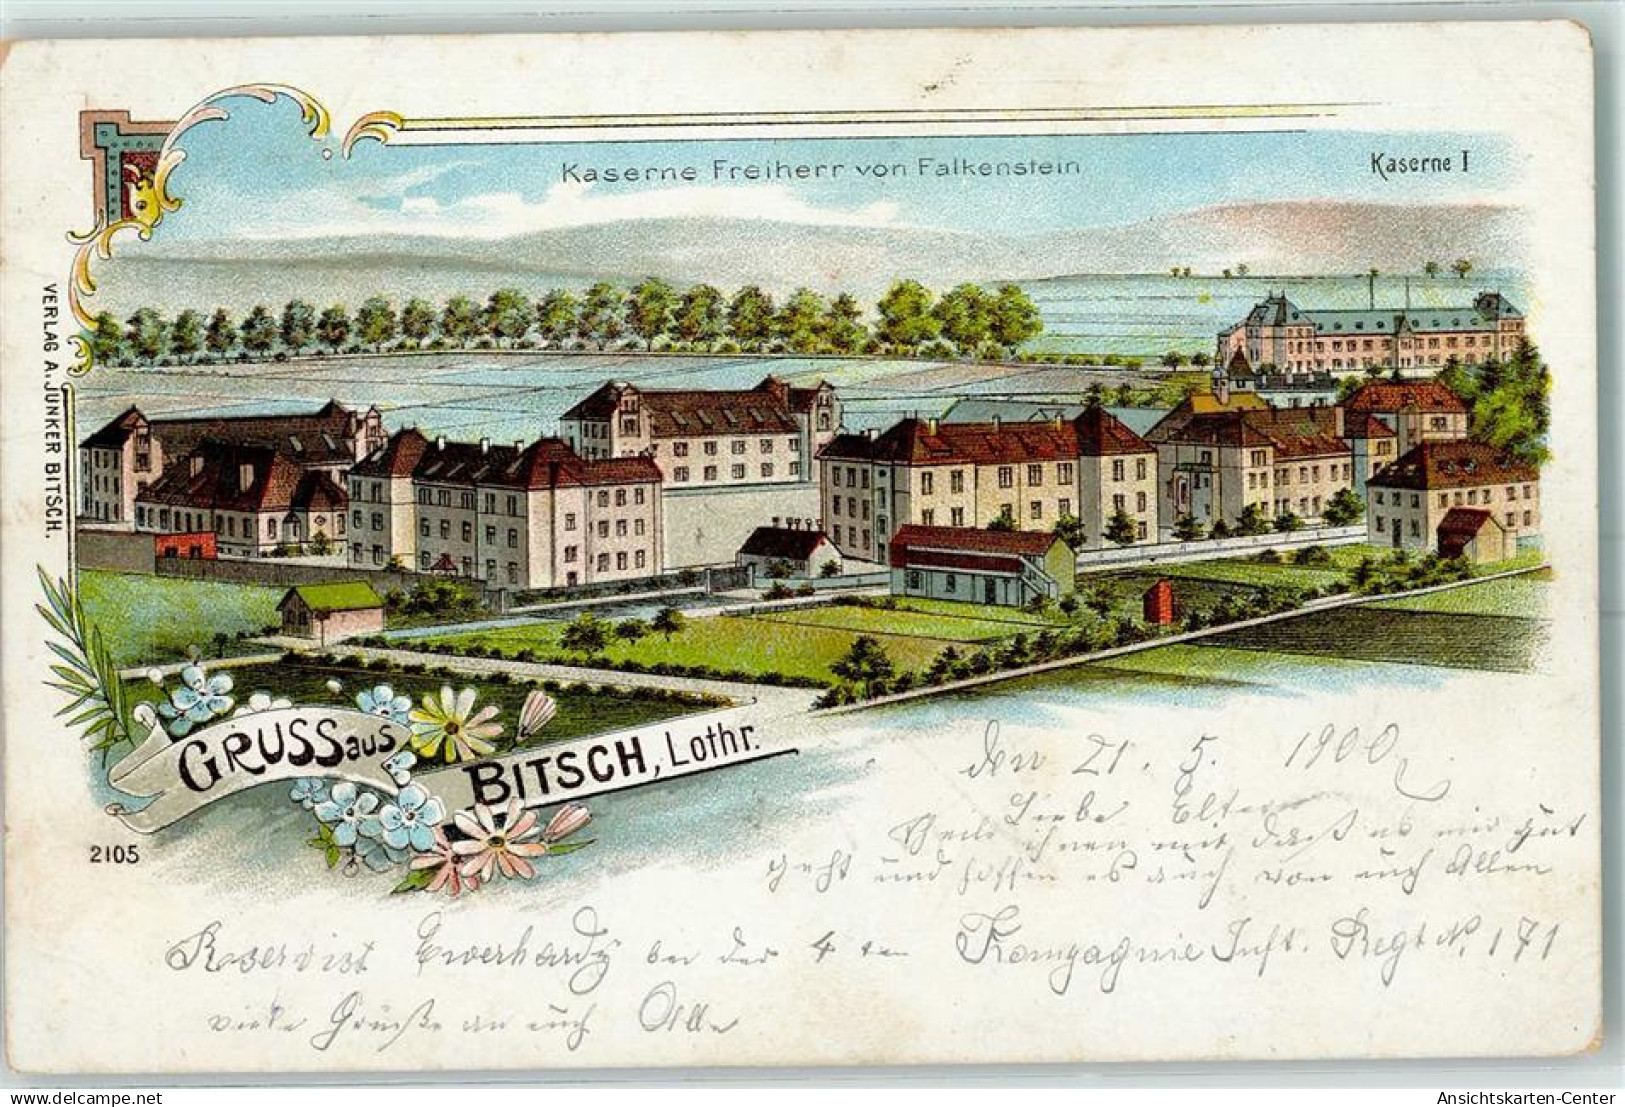 Kaserne Freiherr von Falkenstein
Kaserne I
VERLAG A. JUNKER BITSCH.
GRUSS aus
BITSCH, Lothr.
2105
den 21. 5. 1900
Liebe Eltern
Theile ihnen mit daß es mir gut
geht und hoffen es auch von euch Allen
Reservist Ewerhardy bei der 4 ten Kompagnie Inft. Regt N. 171
viele Grüße an euch Alle
Ansichtskarten-Center